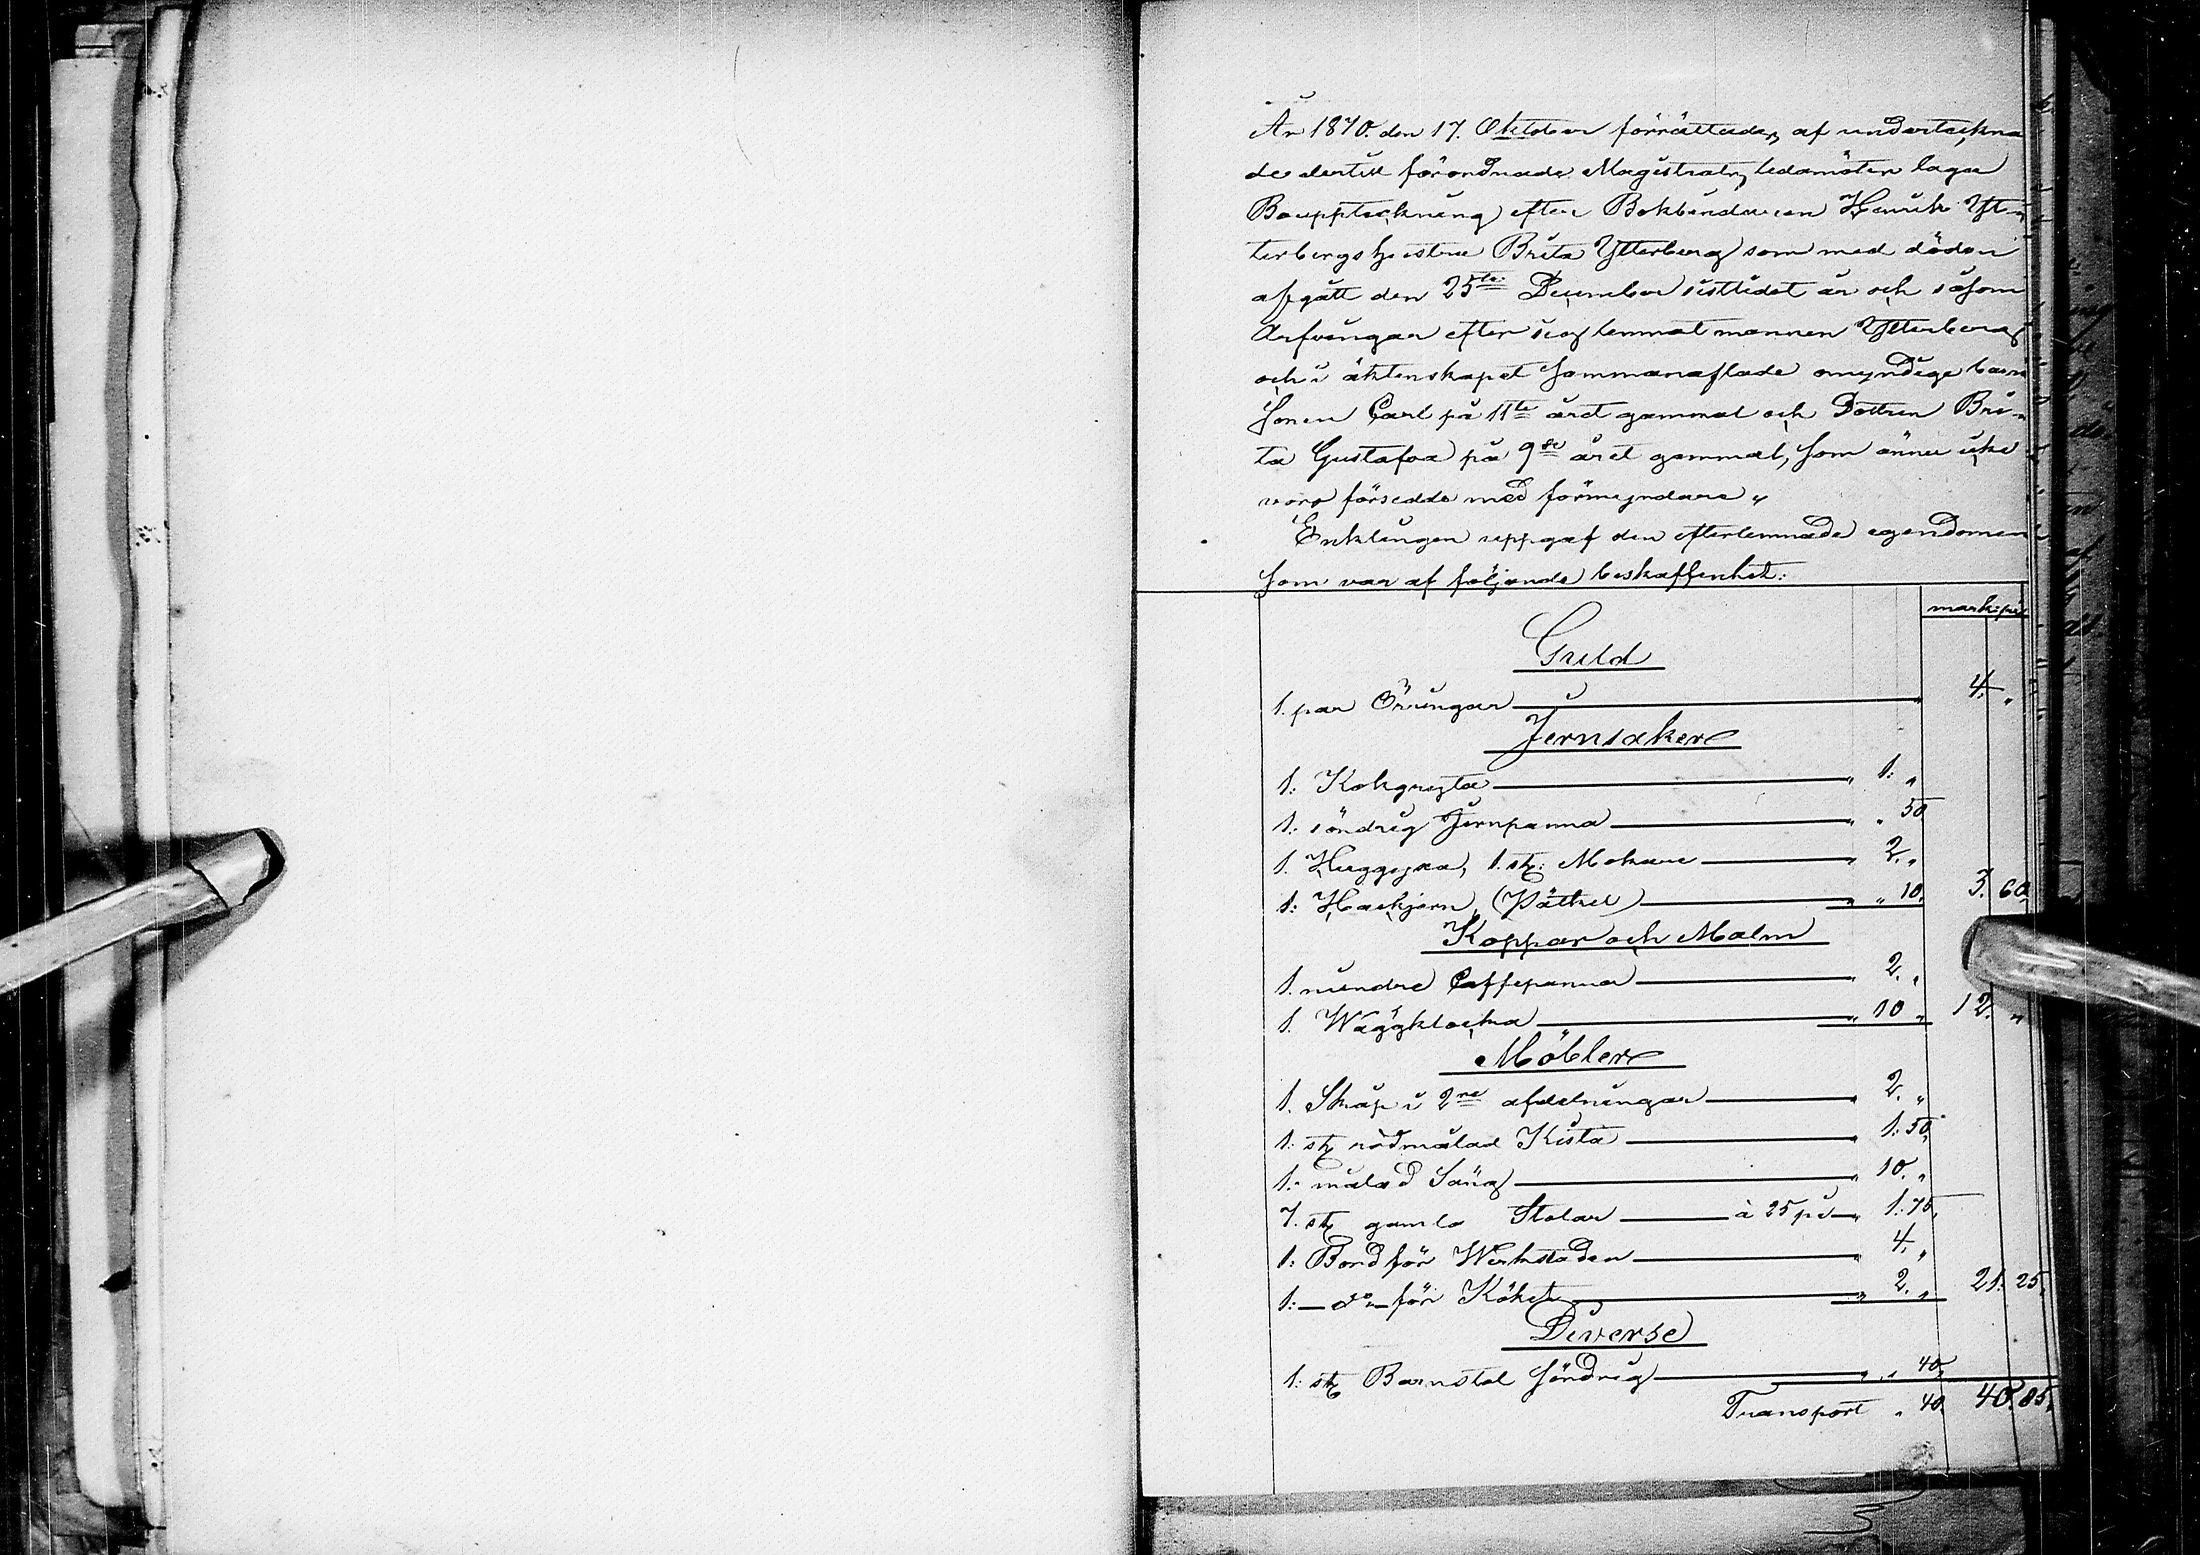 År 1870. den 17. Oktober förrättades af underteckna
de dertill förordnade Magistrats ledamöten laga
Bouppteckning efter Bokbindaren Henrik Yt-
terbergs hustru Brita Ytterberg som med döden
afgått den 25te December sistlidet år och såsom
Arfvingar efter sig lemnat mannen Ytterberg
och i äktenskapet sammanaflade omyndige barn
Sonen Carl på 11te året gammal och Dottren Bri-
ta Gustafva på 9de året gammal, som ännu icke
voro försedde med förmyndare.
Enklingen uppgaf den efterlemnade egendomen
som var af följande beskaffenhet:
mark: pi
Guld
1. par Örringar 4. "
Jernsaker
1: Kokgryta " 1: "
1: söndrig Jernpanna " " 50
1. Huggyxa, 1. st: " 2. "
1: Hackjern (Påthel) " " 10. 3. 60.
Koppar och Malm
1. mindre Caffepanna " 2. "
1. Wäggklocka " 10 " 12. "
Möbler
1. Skåp i 2ne afdelningar " 2. "
1: st rödmålad Kista " 1: 50
1: målad Säng " 10. "
7. st gamla Stolar à 25 pi " 1: 75.
1: Bord för Werkstaden " 4. "
1: do för Köket " 2. " 21. 25.
Diverse
1: st Barnstol söndrig " " 40.
Transport " 40. 40. 85.